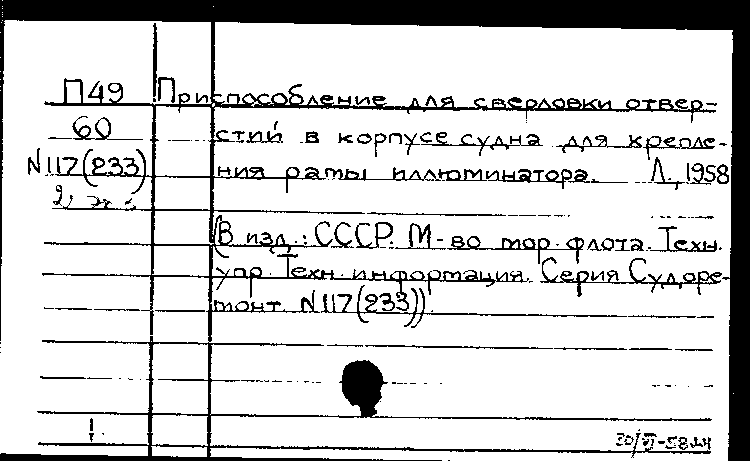 П49
60
N117(233)
2 экз
Приспособление для сверловки отвер-
стий в корпусе судна для крепле-
ния рамы иллюминатора. Л., 1958
(В изд.: СССР. М-во мор. флота. Техн.
упр. Техн. информация. Серия Судоре-
монт. N117(233))
30/VI-58